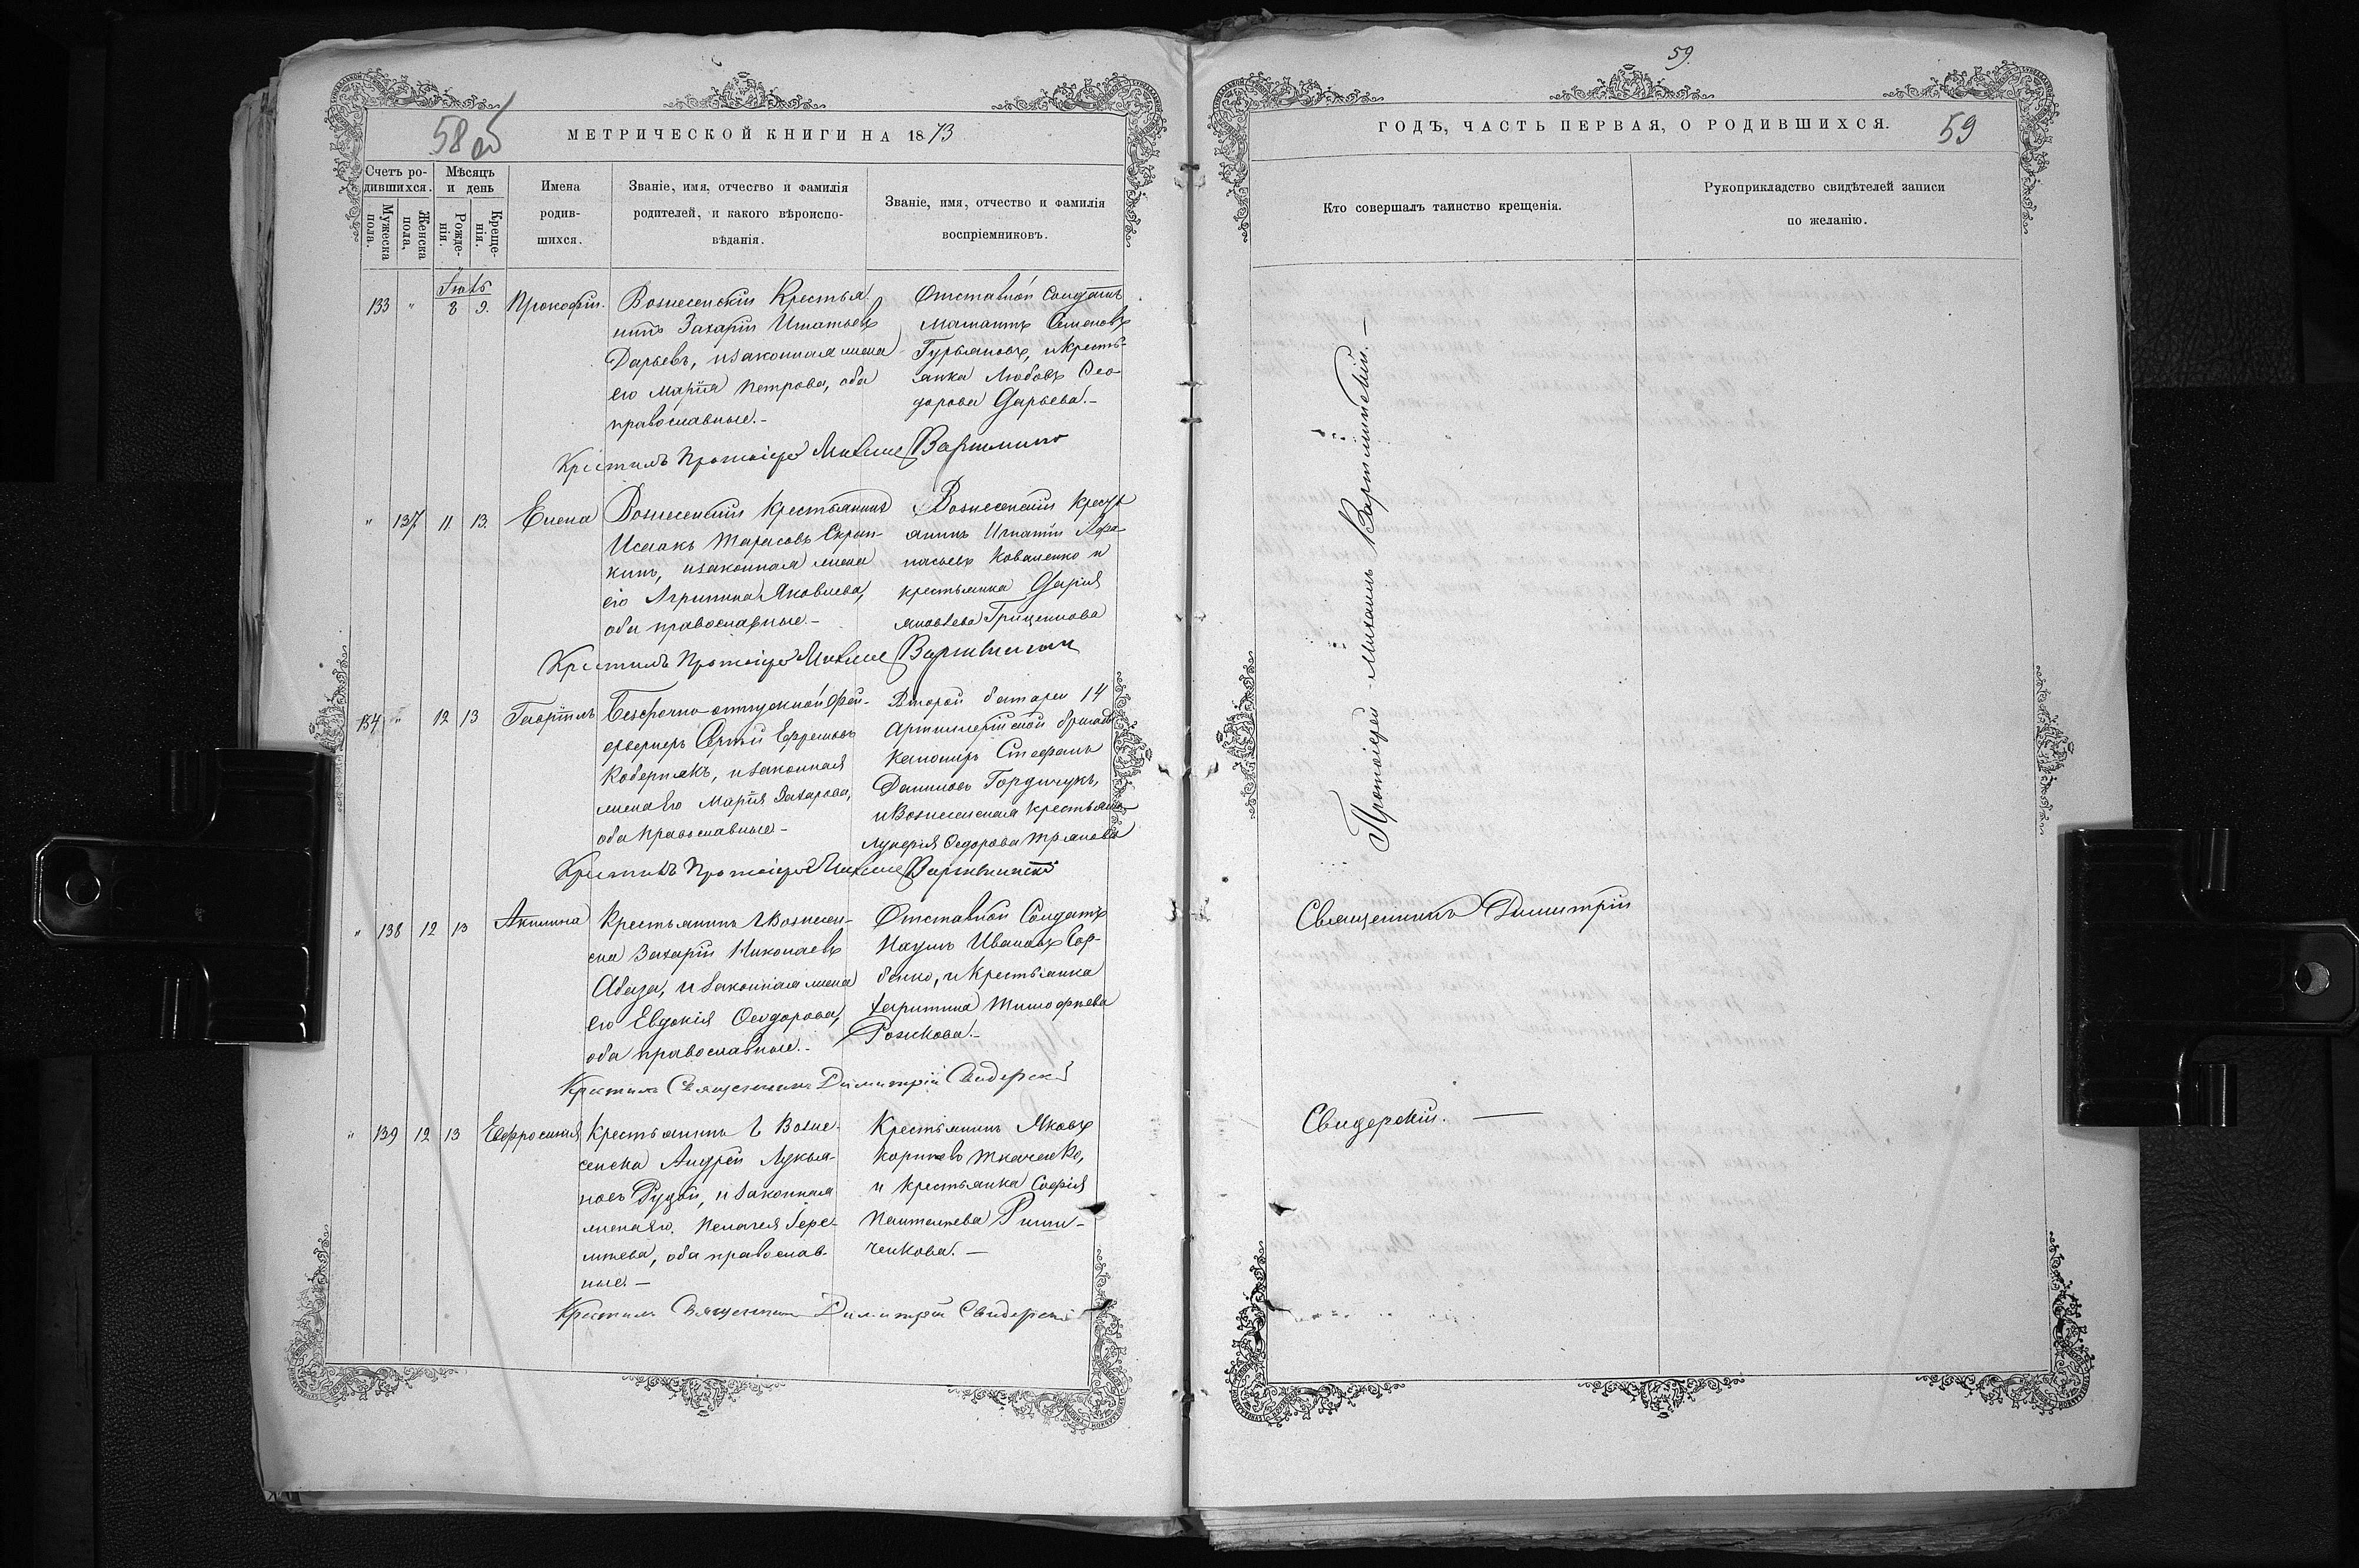 58 об
МЕТРИЧЕСКОЙ КНИГИ НА 1873
Счетъ родившихся.
Мужеска пола.
Женска пола.
Мѣсяцъ и день
Рожденія.
Крещенія.
Имена
родив-
шихся.
Званіе, имя, отчество и фамилія
родителей, и какого вѣроиспо-
вѣданія.
Званіе, имя, отчество и фамилія
воспріемниковъ.
133 " 8 9. Прокофій.
Вознесенскій Крестья
нинъ Захарій Игнатьевъ
Дарьевъ, и законная жена
его Марія Петрова, оба
православные.-
Отставной Солдатъ
Семеновъ
Гурьяновъ, и кресть-
янка Любовь Ѳео-
дорова Дарьева.-
Крестилъ Протоіерей Михаилъ
" 137 11 13. Елена
Вознесенскій Крестьянинъ
Исаакъ Тарасовъ Скрып-
кинъ, и законная жена
его Агрипина Яковлева,
оба православные.-
Вознесенскій Кресть
янинъ Игнатій Афа-
насьевъ Коваленко и
крестьянка Дарія
Яковлева Гриценкова
Крестилъ Протоіерей Михаилъ
134 " 12 13 Гавріилъ
Безсрочно-отпускной Фей-
ерверкеръ Ефремовъ
Коберникъ, и законная
жена его Марія Захарова,
оба православные-
Второй батареи 14
Артиллерійской бригады
Канониръ Стефанъ
Даниловъ Гордичукъ,
и Вознесенская крестьянка
Ѳедорова
Крестилъ Протоіерей Михаилъ
" 138 12 13 Акилина
Крестьянинъ г. Вознесен-
ска Захарій Николаевъ
Абаза, и законная жена
его Евдокія Ѳеодорова,
оба православные.-
Отставной Солдатъ
Наумъ Ивановъ Гор-
бенко, и Крестьянка
Харитина Тимофѣева
Рожкова.-
Крестилъ Священникъ Димитрій Свидерскій
" 139 12 13 Евфросинія
Крестьянинъ г. Возне-
сенска Андрей Лукья-
новъ Рудой, и законная
жена его Пелагея Іере-
міева, оба православ-
ные.-
Крестьянинъ Яковъ
Корніевъ Ткаченко,
и крестьянка Софія
Пантелѣева
ченкова.-
Крестилъ Священникъ Димитрій Свидерскій
59.
ГОДЪ, ЧАСТЬ ПЕРВАЯ, О РОДИВШИХСЯ.
59
Кто совершалъ таинство крещенія.
Рукоприкладство свидѣтелей записи
по желанію.
Протоіерей Михаилъ
Священникъ Димитрій
Свидерскій.-